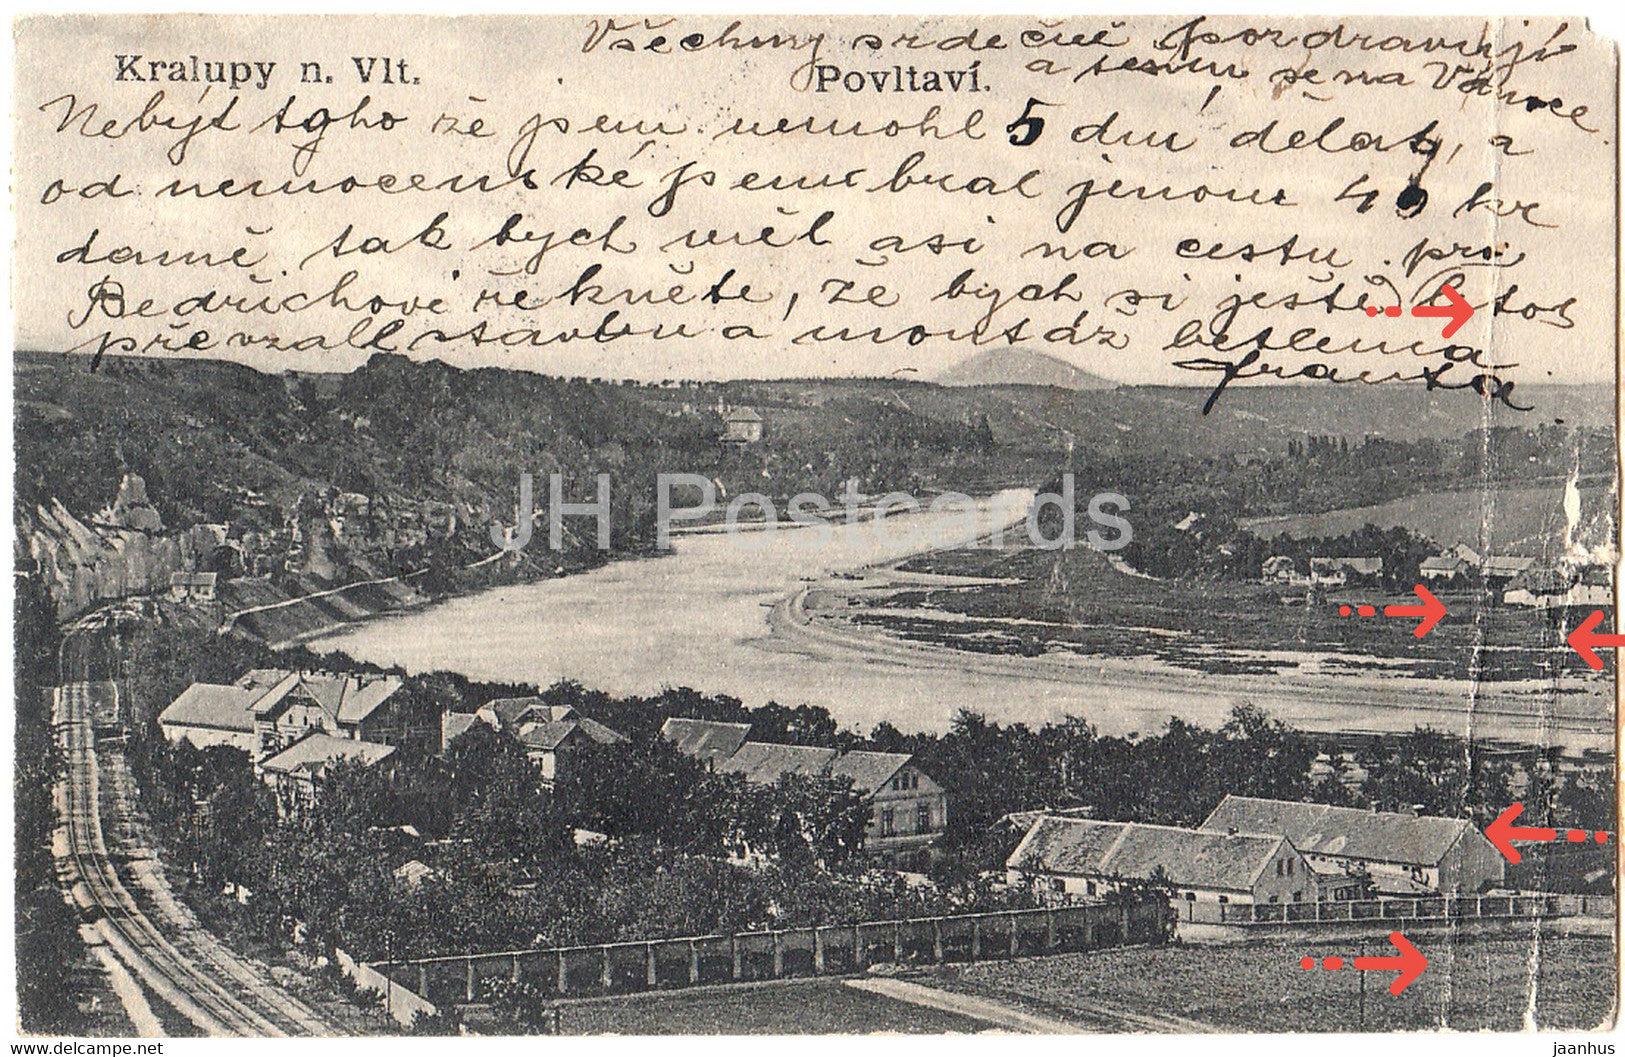 Všechny srdečně pozdravují
Kralupy n. Vlt.
Povltaví.
a těším se na Vánoce.
Nebýt toho že jsem nemohl 5 dní dělat, a
od nemocenské jsem bral jenom 40 kr
denně tak bych měl asi na cestu. při
Bedřichovi řekněte, že bych si ještě letos
převzall stavbu a montáž betlema
Franta.
JH Postcards
delcampe.net
jaanhus